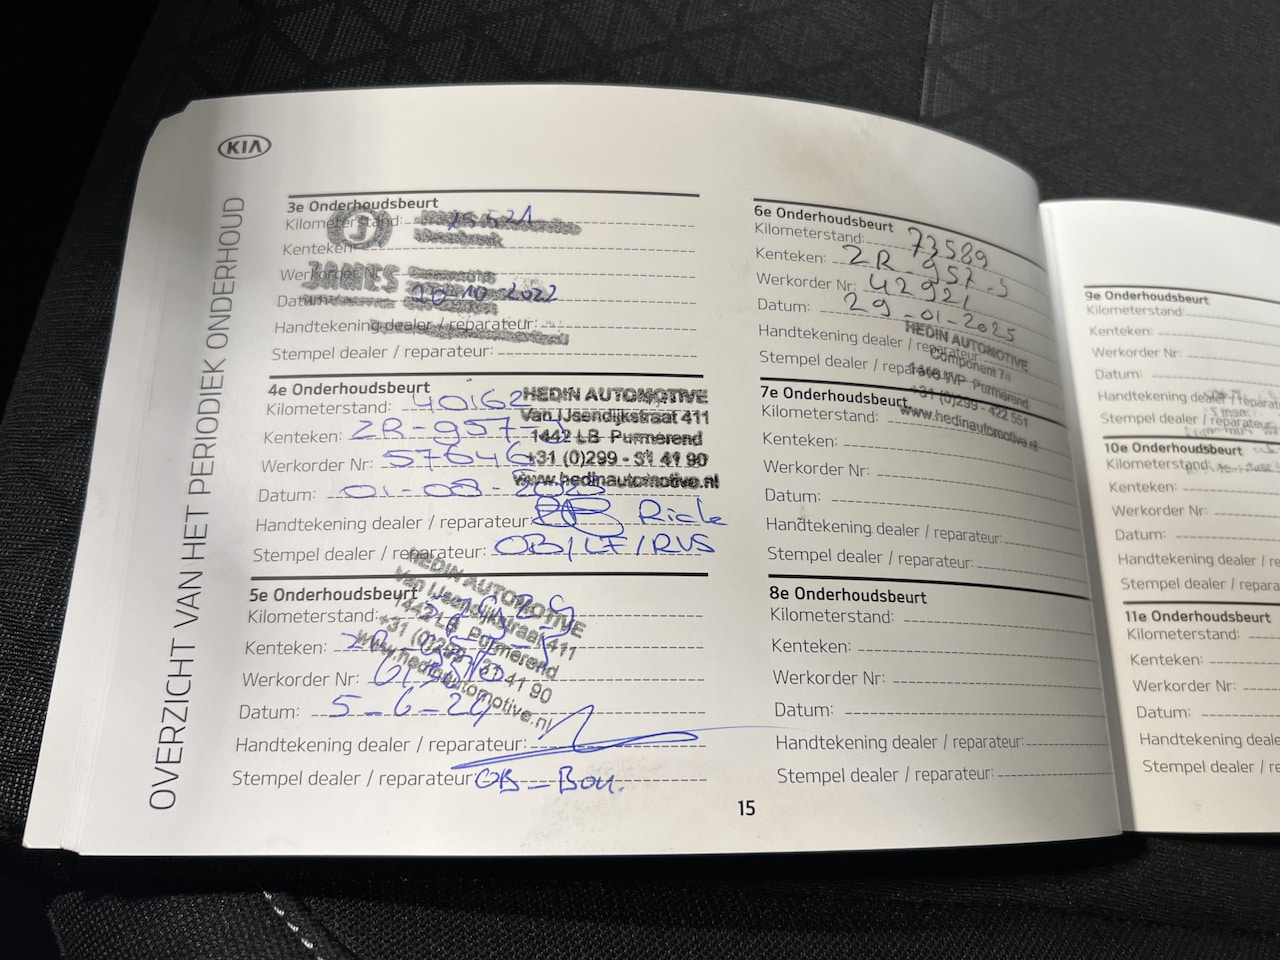 KIA
OVERZICHT VAN HET PERIODIEK ONDERHOUD
3e Onderhoudsbeurt
Kilometerstand:
Kenteken:
Werkorder Nr:
JAMES
Datum: 20-10-2022
Handtekening dealer / reparateur:
Stempel dealer / reparateur:
4e Onderhoudsbeurt
Kilometerstand: 40162
Kenteken: ZR-957-
Werkorder Nr: 57646
Datum: 01-08-2023
Handtekening dealer / reparateur: Rick
Stempel dealer / reparateur: OB/LF/RVS
HEDIN AUTOMOTIVE
Van IJsendijkstraat 411
1442 LB Purmerend
+31 (0)299 - 31 41 90
www.hedinautomotive.nl
5e Onderhoudsbeurt
Kilometerstand:
Kenteken:
Werkorder Nr:
Datum: 5-6-24
Handtekening dealer / reparateur:
Stempel dealer / reparateur: OB - Bou.
HEDIN AUTOMOTIVE
Van IJsendijkstraat 411
1442 LB Purmerend
+31 (0)299 - 31 41 90
www.hedinautomotive.nl
6e Onderhoudsbeurt
Kilometerstand: 73589
Kenteken: ZR 957-S
Werkorder Nr: 42921
Datum: 29-01-2025
Handtekening dealer / reparateur:
Stempel dealer / reparateur:
HEDIN AUTOMOTIVE
Component 74
1446 WP Purmerend
+31 (0)299 - 422 551
www.hedinautomotive.nl
7e Onderhoudsbeurt
Kilometerstand:
Kenteken:
Werkorder Nr:
Datum:
Handtekening dealer / reparateur:
Stempel dealer / reparateur:
8e Onderhoudsbeurt
Kilometerstand:
Kenteken:
Werkorder Nr:
Datum:
Handtekening dealer / reparateur:
Stempel dealer / reparateur:
15
9e Onderhoudsbeurt
Kilometerstand:
Kenteken:
Werkorder Nr:
Datum:
Handtekening dealer / reparat
Stempel dealer / reparateur:
10e Onderhoudsbeurt
Kilometerstand:
Kenteken:
Werkorder Nr:
Datum:
Handtekening dealer / re
Stempel dealer / repara
11e Onderhoudsbeurt
Kilometerstand:
Kenteken:
Werkorder Nr:
Datum:
Handtekening dealer / re
Stempel dealer / re